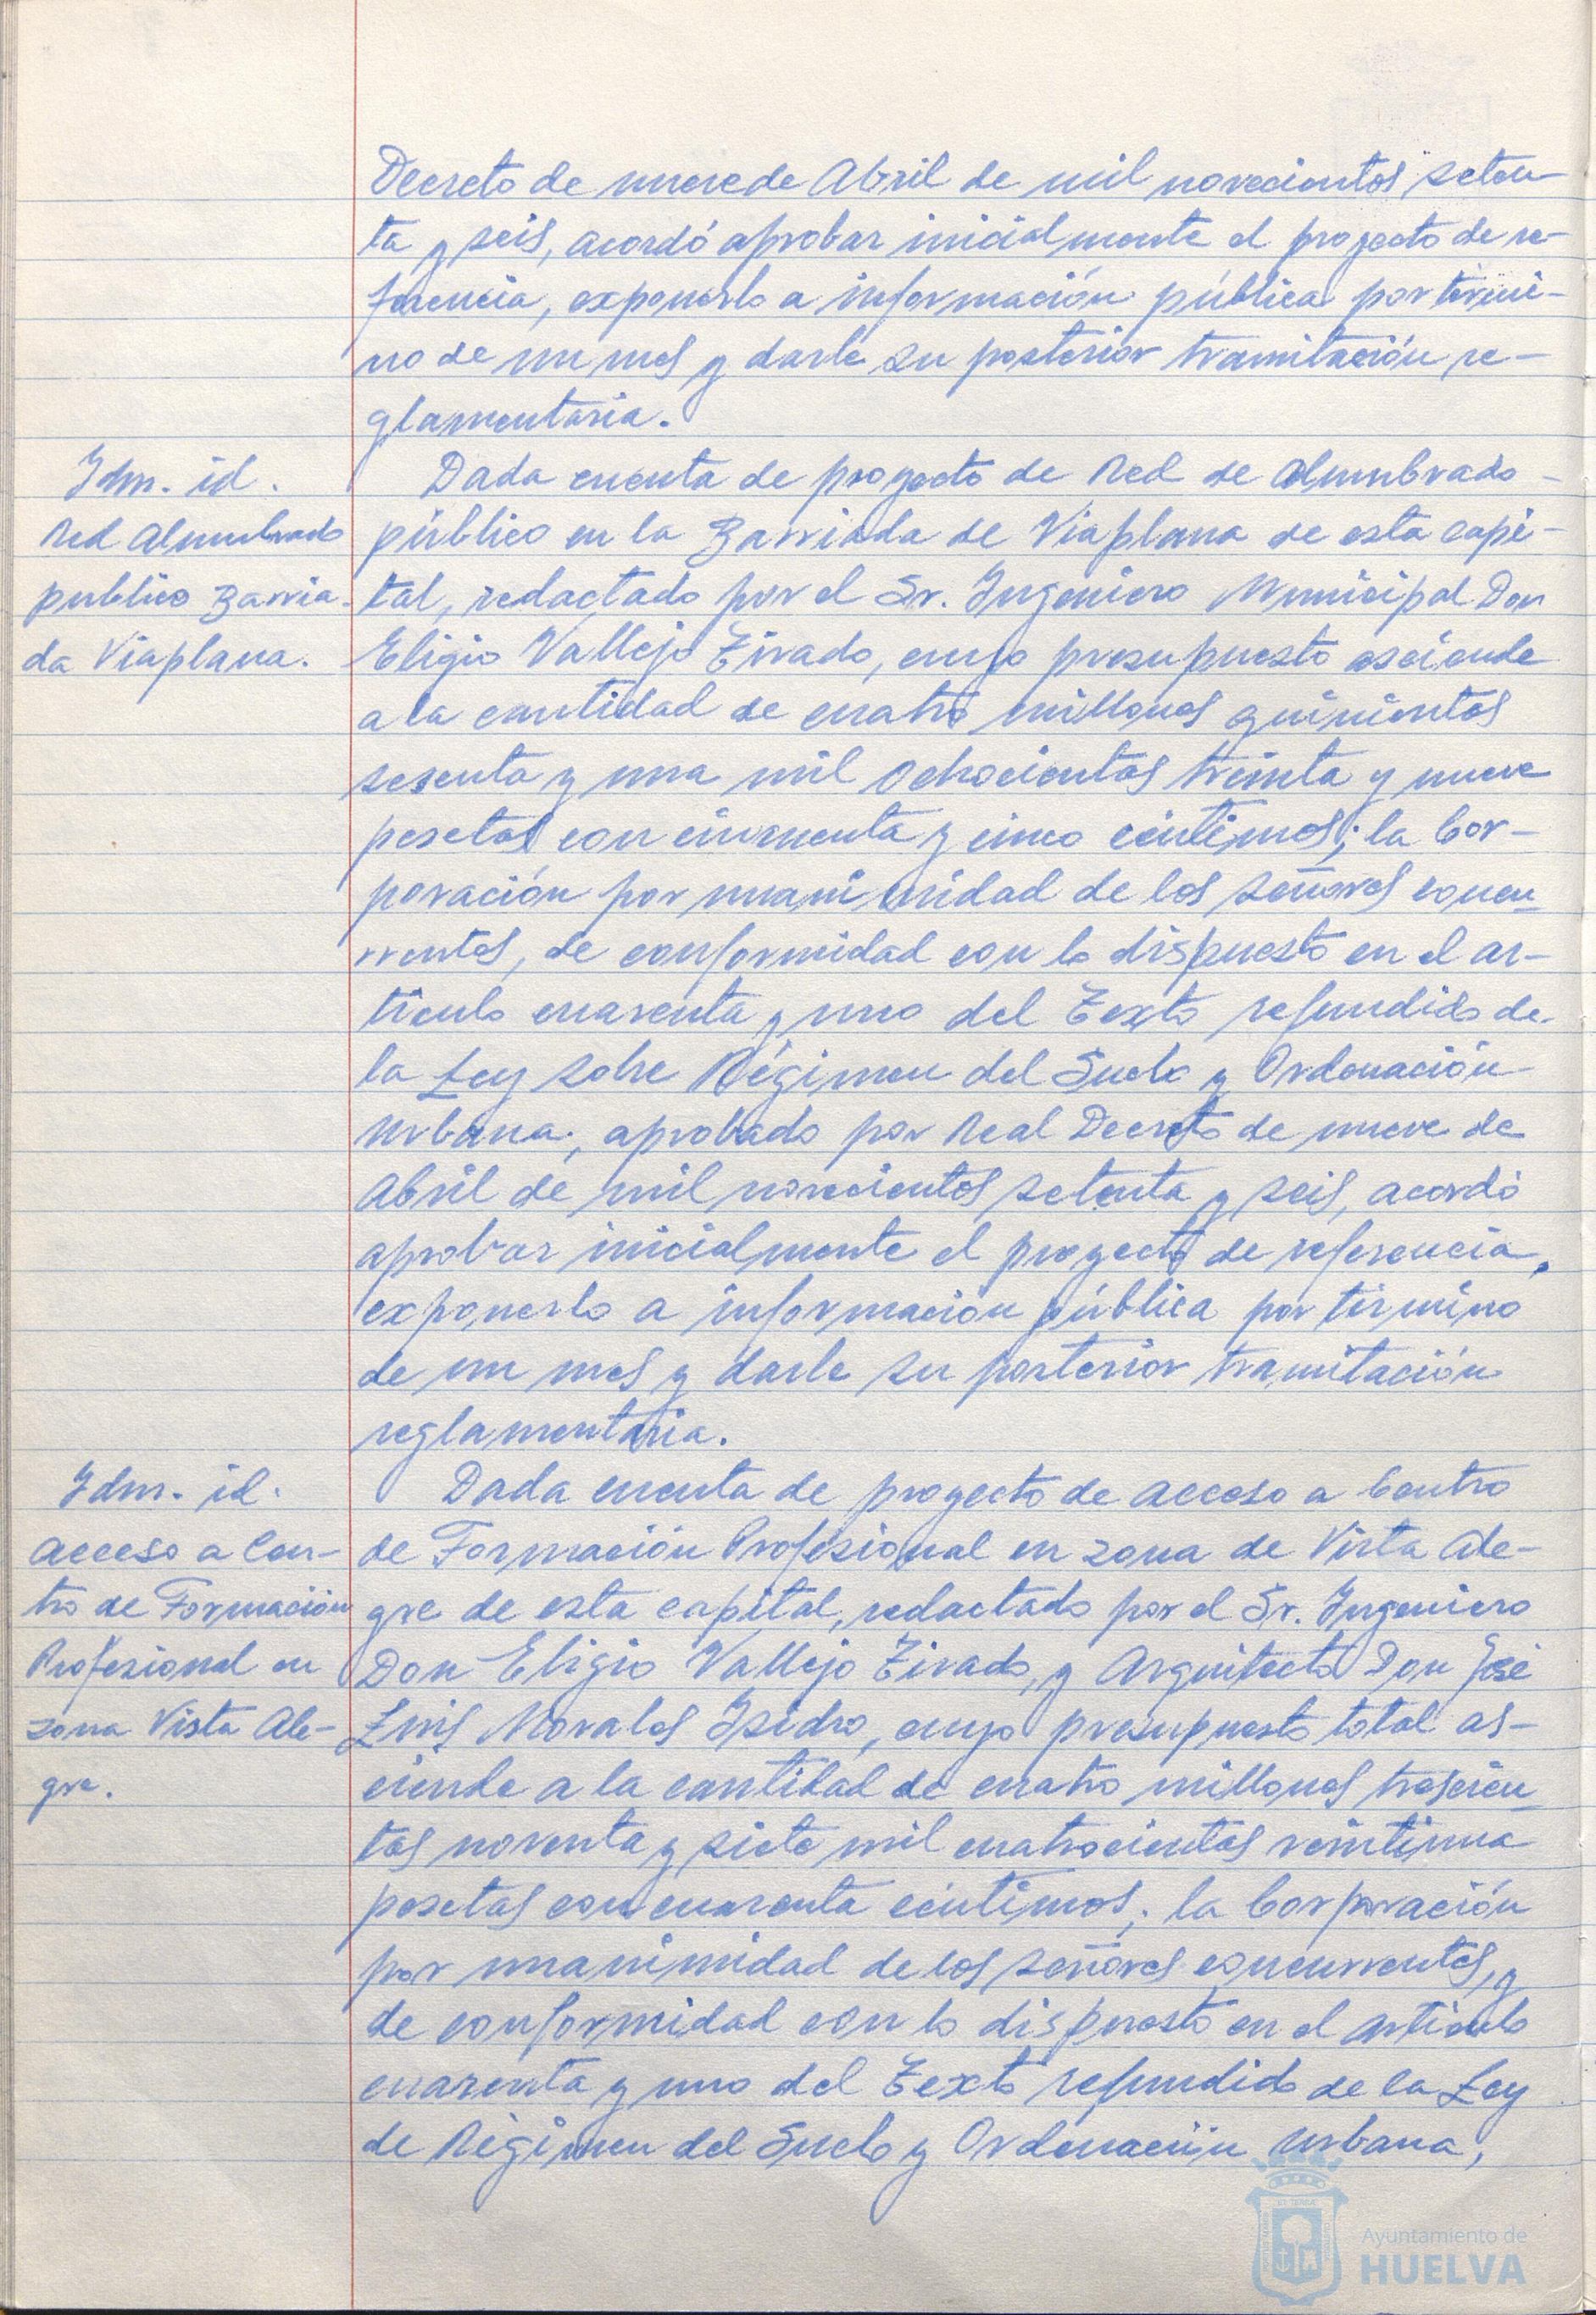 Decreto de nueve de Abril de mil novecientos seten-
ta y seis, acordó aprobar inicialmente el proyecto de re-
ferencia, exponerlo a información pública por térmi-
no de un mes y darle su posterior tramitación re-
glamentaria.
Idm. id.
Red Alumbrado
publico Barria-
da Viaplana.
Dada cuenta de proyecto de Red de Alumbrado
público en la Barriada de Viaplana de esta capi-
tal, redactado por el Sr. Ingeniero Municipal Don
Eligio Vallejo Tirado, cuyo presupuesto asciende
a la cantidad de cuatro millones quinientas
sesenta y una mil ochocientas treinta y nueve
pesetas con cincuenta y cinco céntimos; la Cor-
poración por unanimidad de los señores concu-
rrentes, de conformidad con lo dispuesto en el ar-
tículo cuarenta y uno del Texto refundido de
la Ley sobre Régimen del Suelo y Ordenación
Urbana, aprobado por Real Decreto de nueve de
Abril de mil novecientos setenta y seis, acordó
aprobar inicialmente el proyecto de referencia,
exponerlo a información pública por término
de un mes y darle su posterior tramitación
reglamentaria.
Idm. id.
acceso a Cen-
tro de Formación
Profesional en
zona Vista Ale-
gre.
Dada cuenta de proyecto de acceso a Centro
de Formación Profesional en zona de Vista Ale-
gre de esta capital, redactado por el Sr. Ingeniero
Don Eligio Vallejo Tirado, y Arquitecto Don José
Luis Morales Isidro, cuyo presupuesto total as-
ciende a la cantidad de cuatro millones trescien-
tas noventa y siete mil cuatrocientas veintiuna
pesetas con cuarenta céntimos; la Corporación
por unanimidad de los señores concurrentes, y
de conformidad con lo dispuesto en el artículo
cuarenta y uno del Texto refundido de la Ley
de Régimen del Suelo y Ordenación Urbana,
Ayuntamiento de
HUELVA